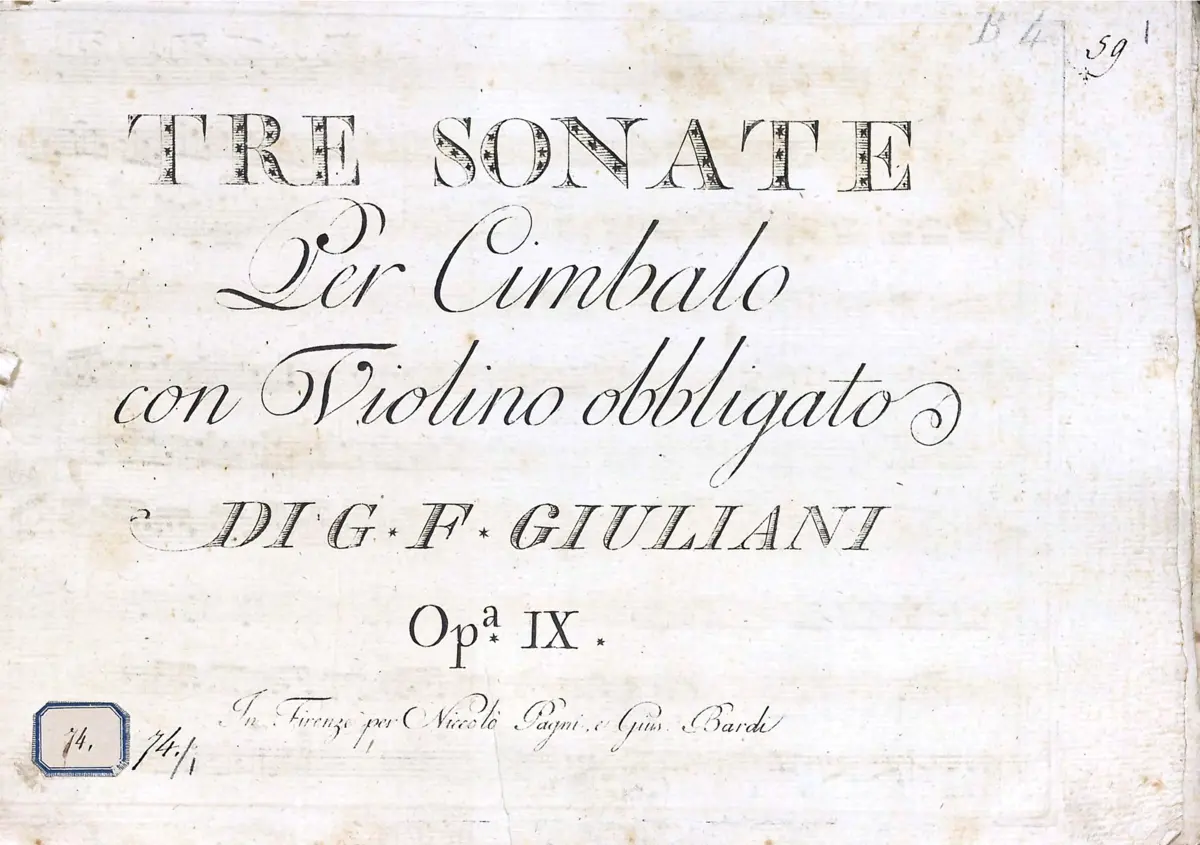 B 4
59 1
TRE SONATE
Per Cimbalo
con Violino obbligato
DI G * F * GIULIANI
Opª IX *
In Firenze per Niccolò Pagni, e Gius. Bardi
74. 74./1